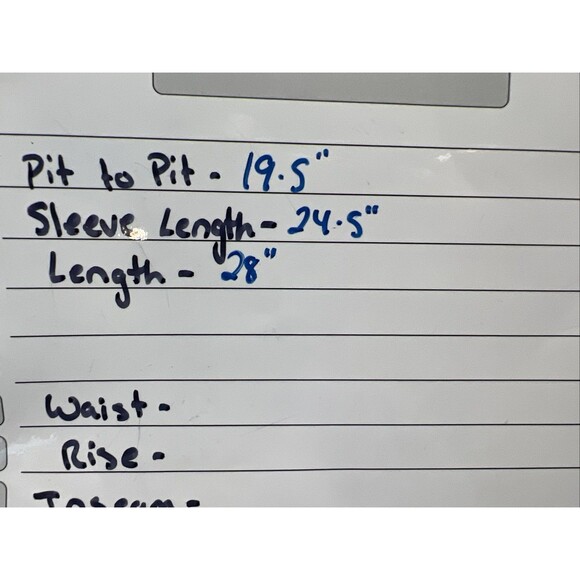 Pit to Pit - 19.5"
Sleeve Length - 24.5"
Length - 28"
Waist -
Rise -
Inseam -